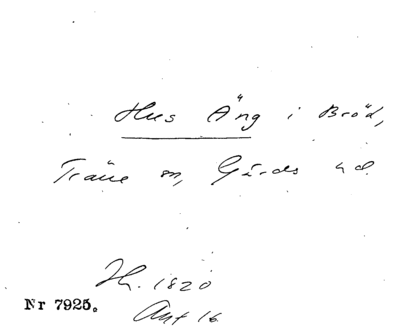 Hus Äng i Bröd,
Träne sn, Gärds hd.
Jh. 1820
Nr 7925.
Akt 16